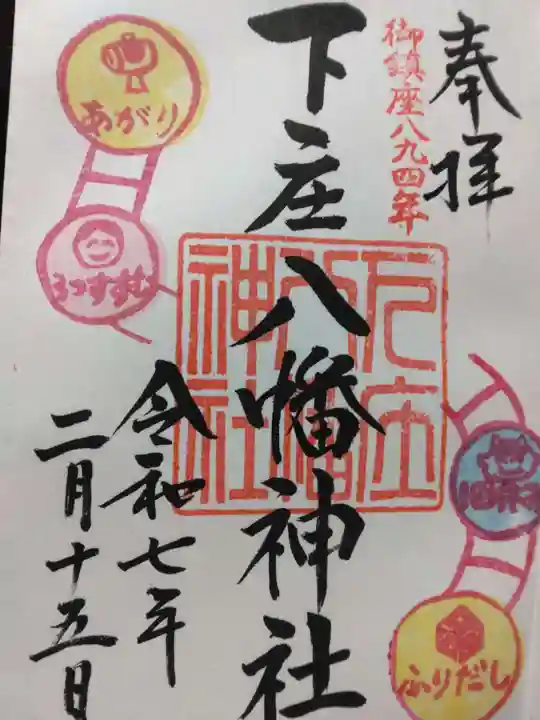 奉拝
御鎮座八九四年
下庄八幡神社
下庄
八幡
神社
令和七年
二月十五日
あがり
3つすすむ
1回休み
ふりだし